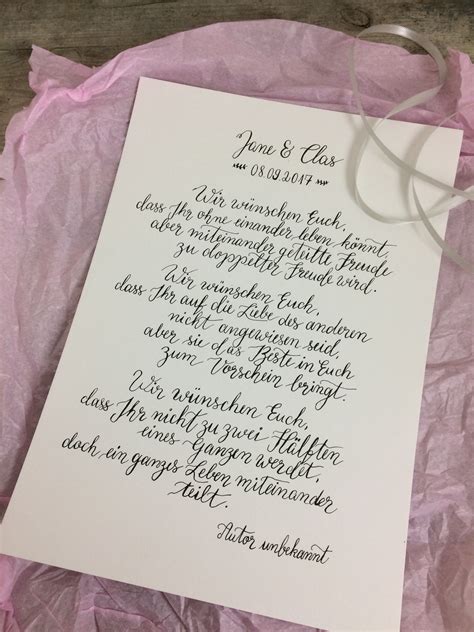 Jane & Clas
08.09.2017
Wir wünschen Euch,
dass Ihr ohne einander leben könnt,
aber miteinander geteilte Freude
zu doppelter Freude wird.
Wir wünschen Euch,
dass Ihr auf die Liebe des anderen
nicht angewiesen seid,
aber sie das Beste in Euch
zum Vorschein bringt.
Wir wünschen Euch,
dass Ihr nicht zu zwei Hälften
eines Ganzen werdet,
doch ein ganzes Leben miteinander
teilt.
Autor unbekannt